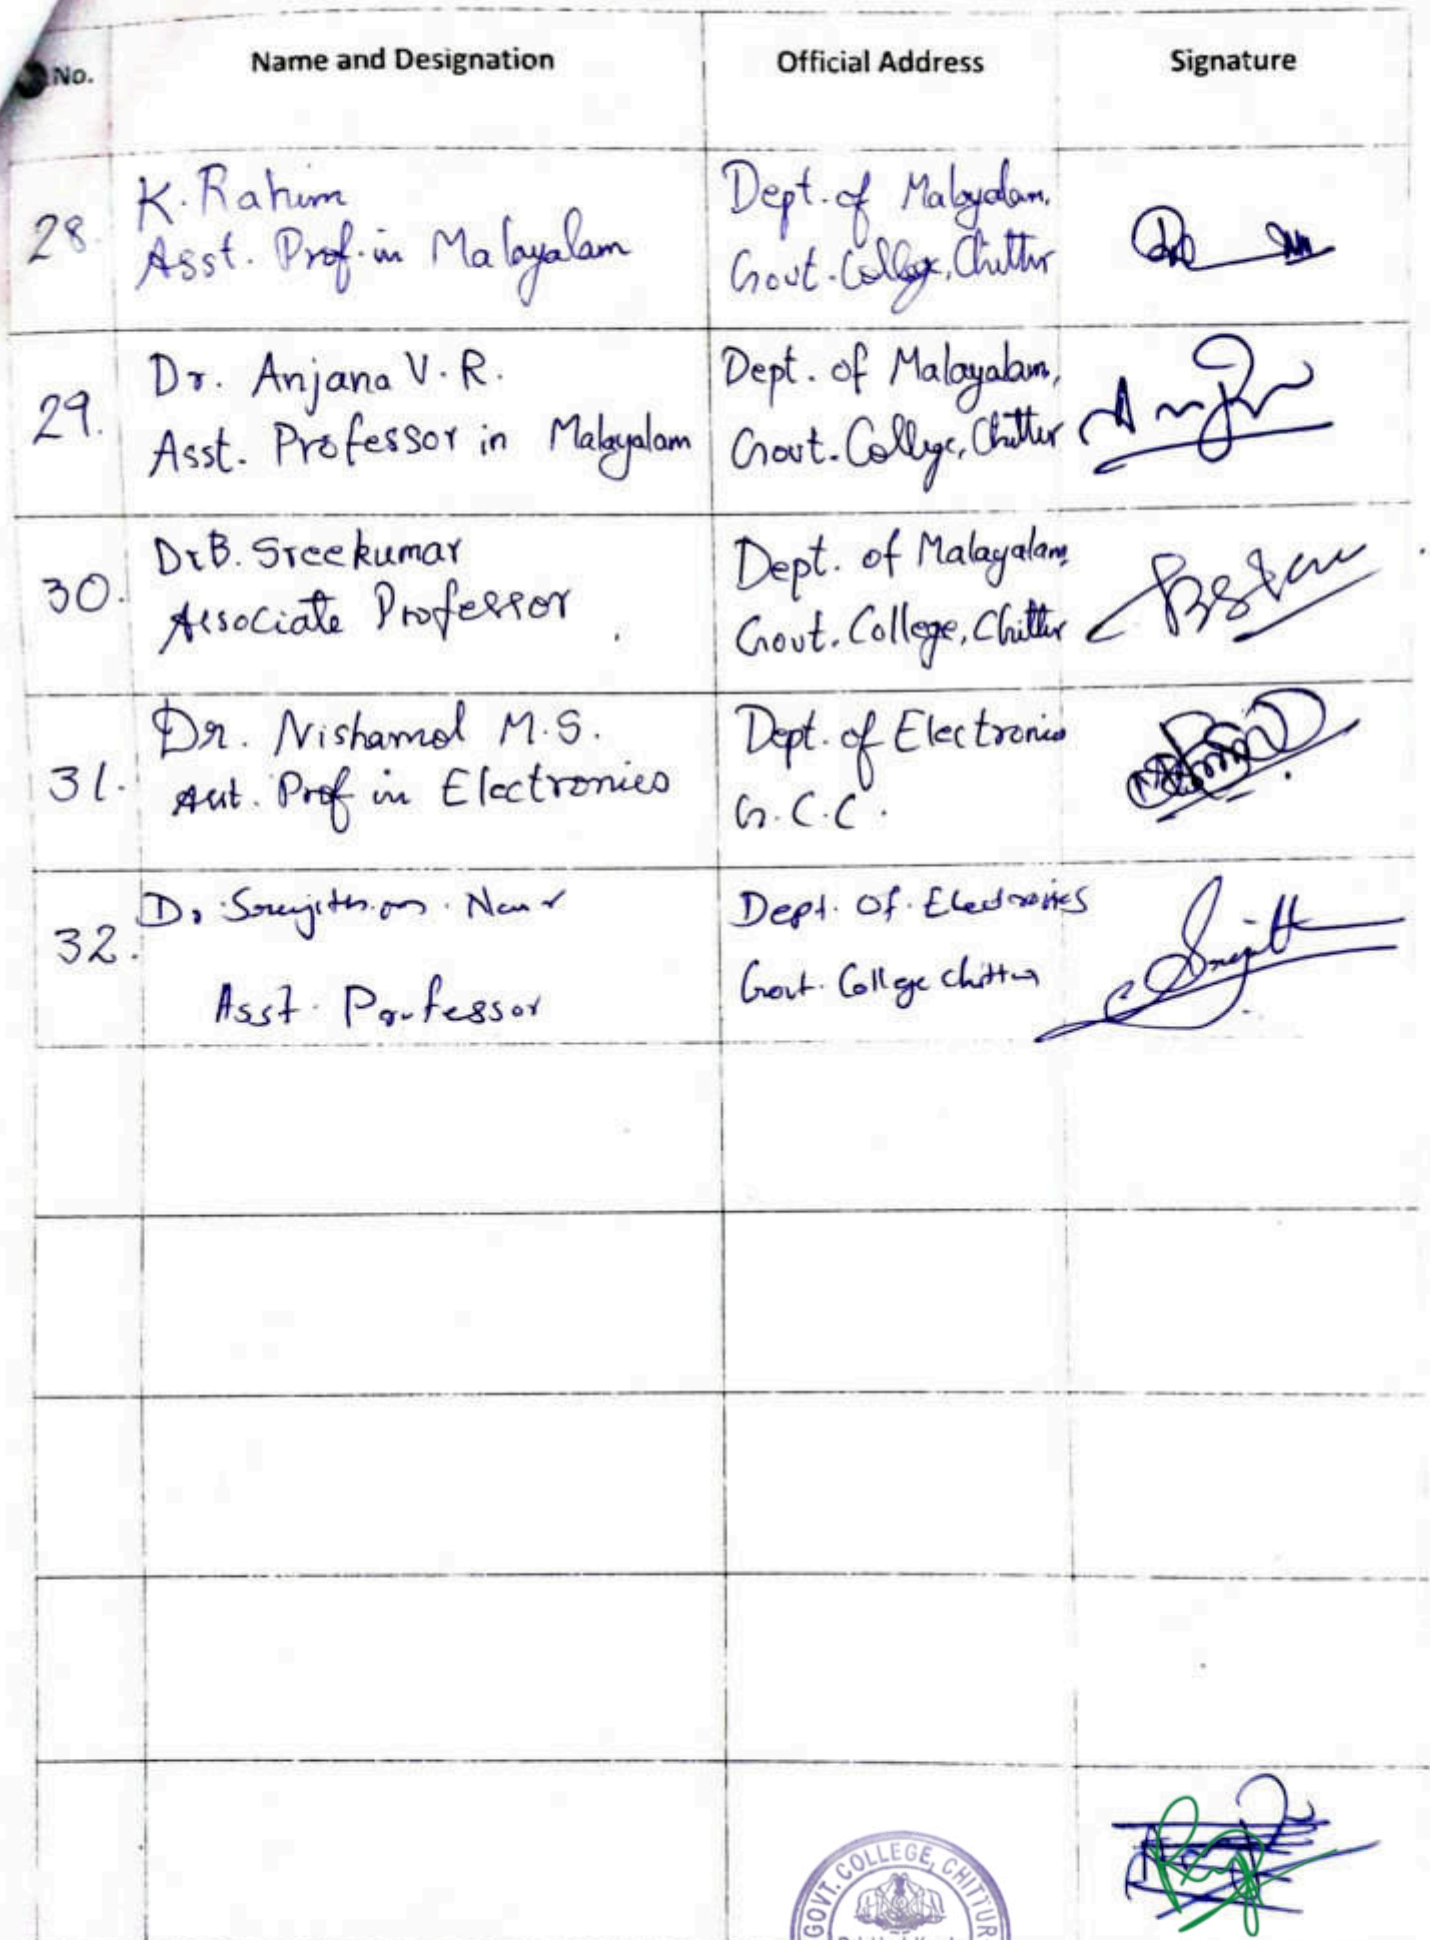 No. Name and Designation Official Address Signature
28. K. Rahim
Asst. Prof. in Malayalam
Dept. of Malayalam,
Govt. College, Chittur
29. Dr. Anjana V. R.
Asst. Professor in Malayalam
Dept. of Malayalam,
Govt. College, Chittur
30. Dr B. Sreekumar
Associate Professor
Dept. of Malayalam
Govt. College, Chittur
31. Dr. Nishamol M.S.
Asst. Prof in Electronics
Dept. of Electronics
G.C.C.
32. Dr
Asst. Professor
Dept. Of Electronics
Govt. College Chittur
GOVT. COLLEGE, CHITTUR